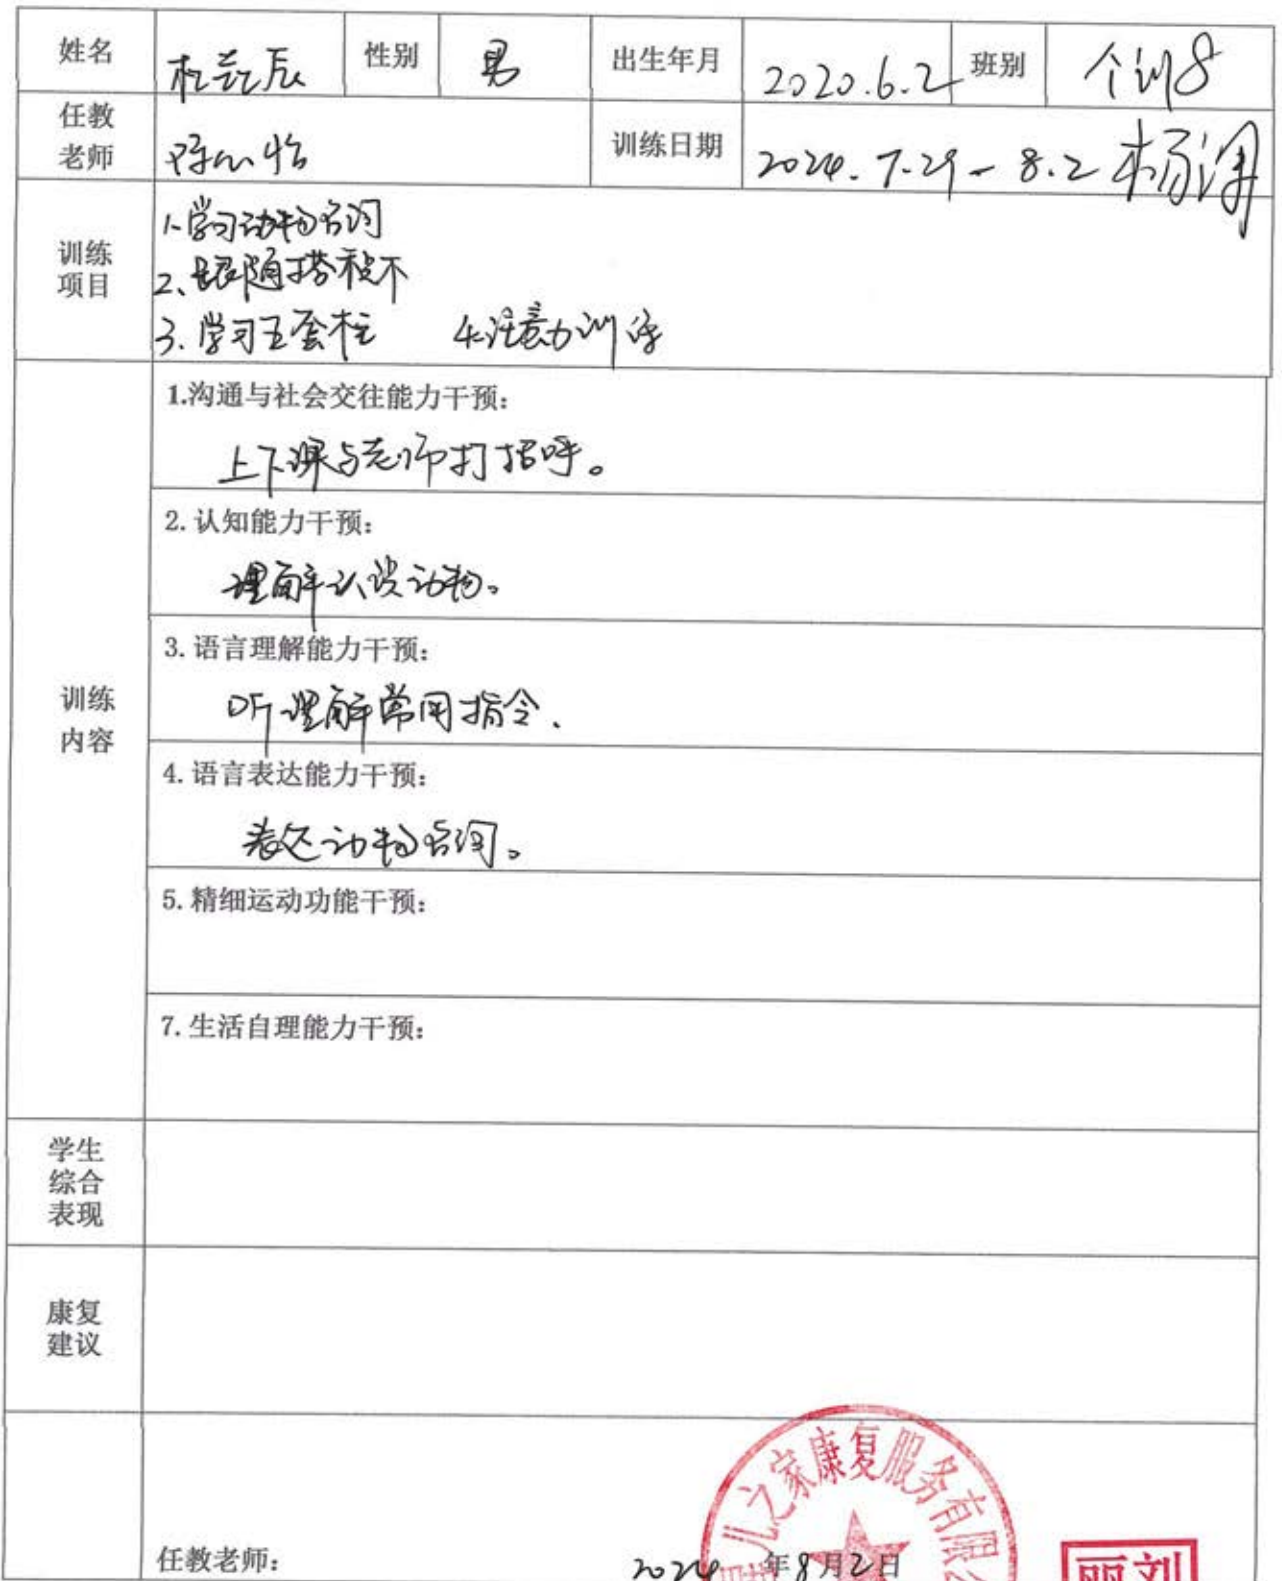 姓名 杜 辰 性别 男 出生年月 2020.6.2 班别 个训8
任教老师 陈心怡 训练日期 2024.7.29-8.2 杨
训练项目
1.学习动物名词
2.跟随搭积木
3.学习五套柱 4.注意力训练
训练内容
1.沟通与社会交往能力干预:
上下课与老师打招呼。
2.认知能力干预:
理解认识动物。
3.语言理解能力干预:
听理解常用指令.
4.语言表达能力干预:
表达动物名词。
5.精细运动功能干预:
7.生活自理能力干预:
学生综合表现
康复建议
儿之家康复服务有限公
任教老师: 2024年8月2日
丽刘